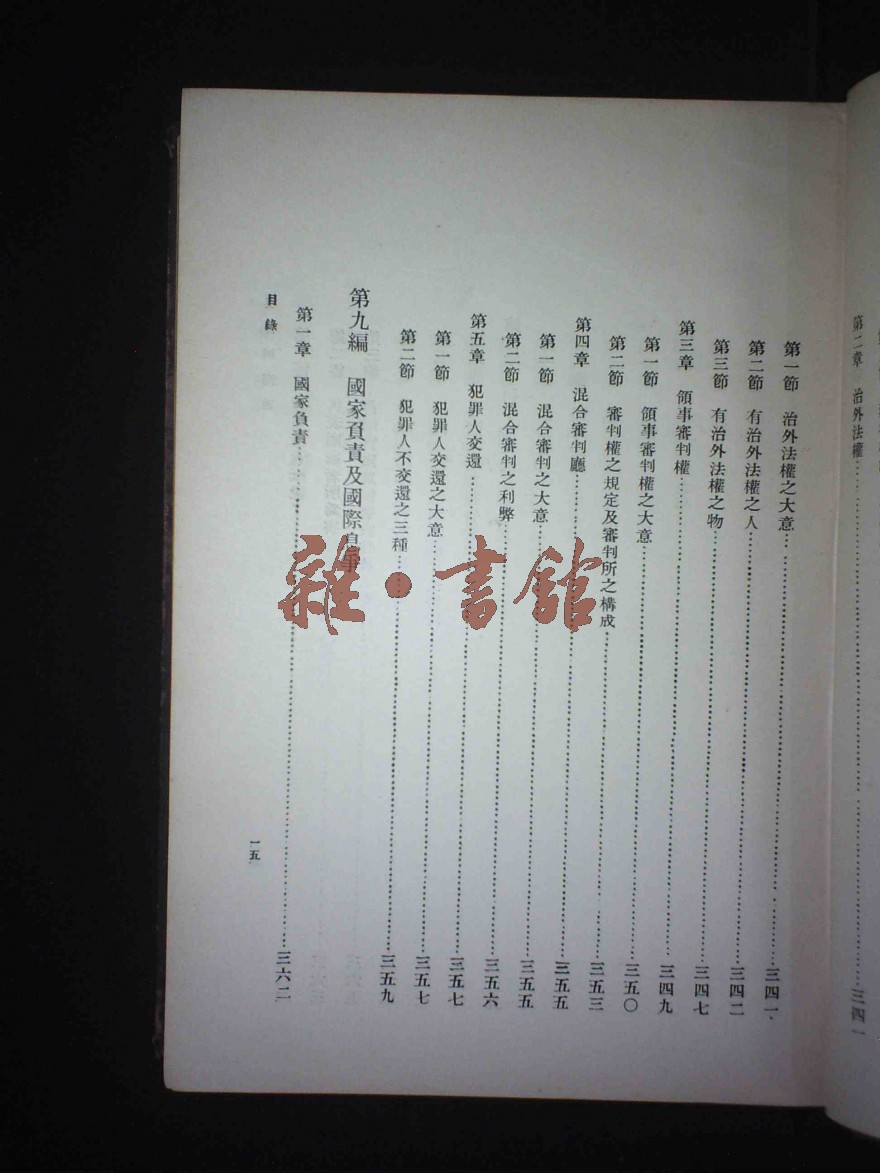 第二章　治外法權……三四一
第一節　治外法權之大意……三四一
第二節　有治外法權之人……三四二
第三節　有治外法權之物……三四七
第三章　領事審判權……三四九
第一節　領事審判權之大意……三五〇
第二節　審判權之規定及審判所之構成……三五三
第四章　混合審判廳……三五五
第一節　混合審判之大意……三五五
第二節　混合審判之利弊……三五六
第五章　犯罪人交還……三五七
第一節　犯罪人交還之大意……三五七
第二節　犯罪人不交還之三種……三五九
第九編　國家負責及國際
第一章　國家負責……三六二
目錄
一五
雜·書館